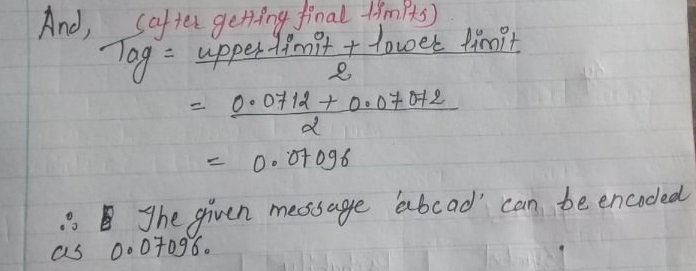 And, (after getting final limits)
Tag = upper limit + lower limit
2
= 0.0712 + 0.07072
2
= 0.07096
∴ The given message 'abcad' can be encoded
as 0.07096.